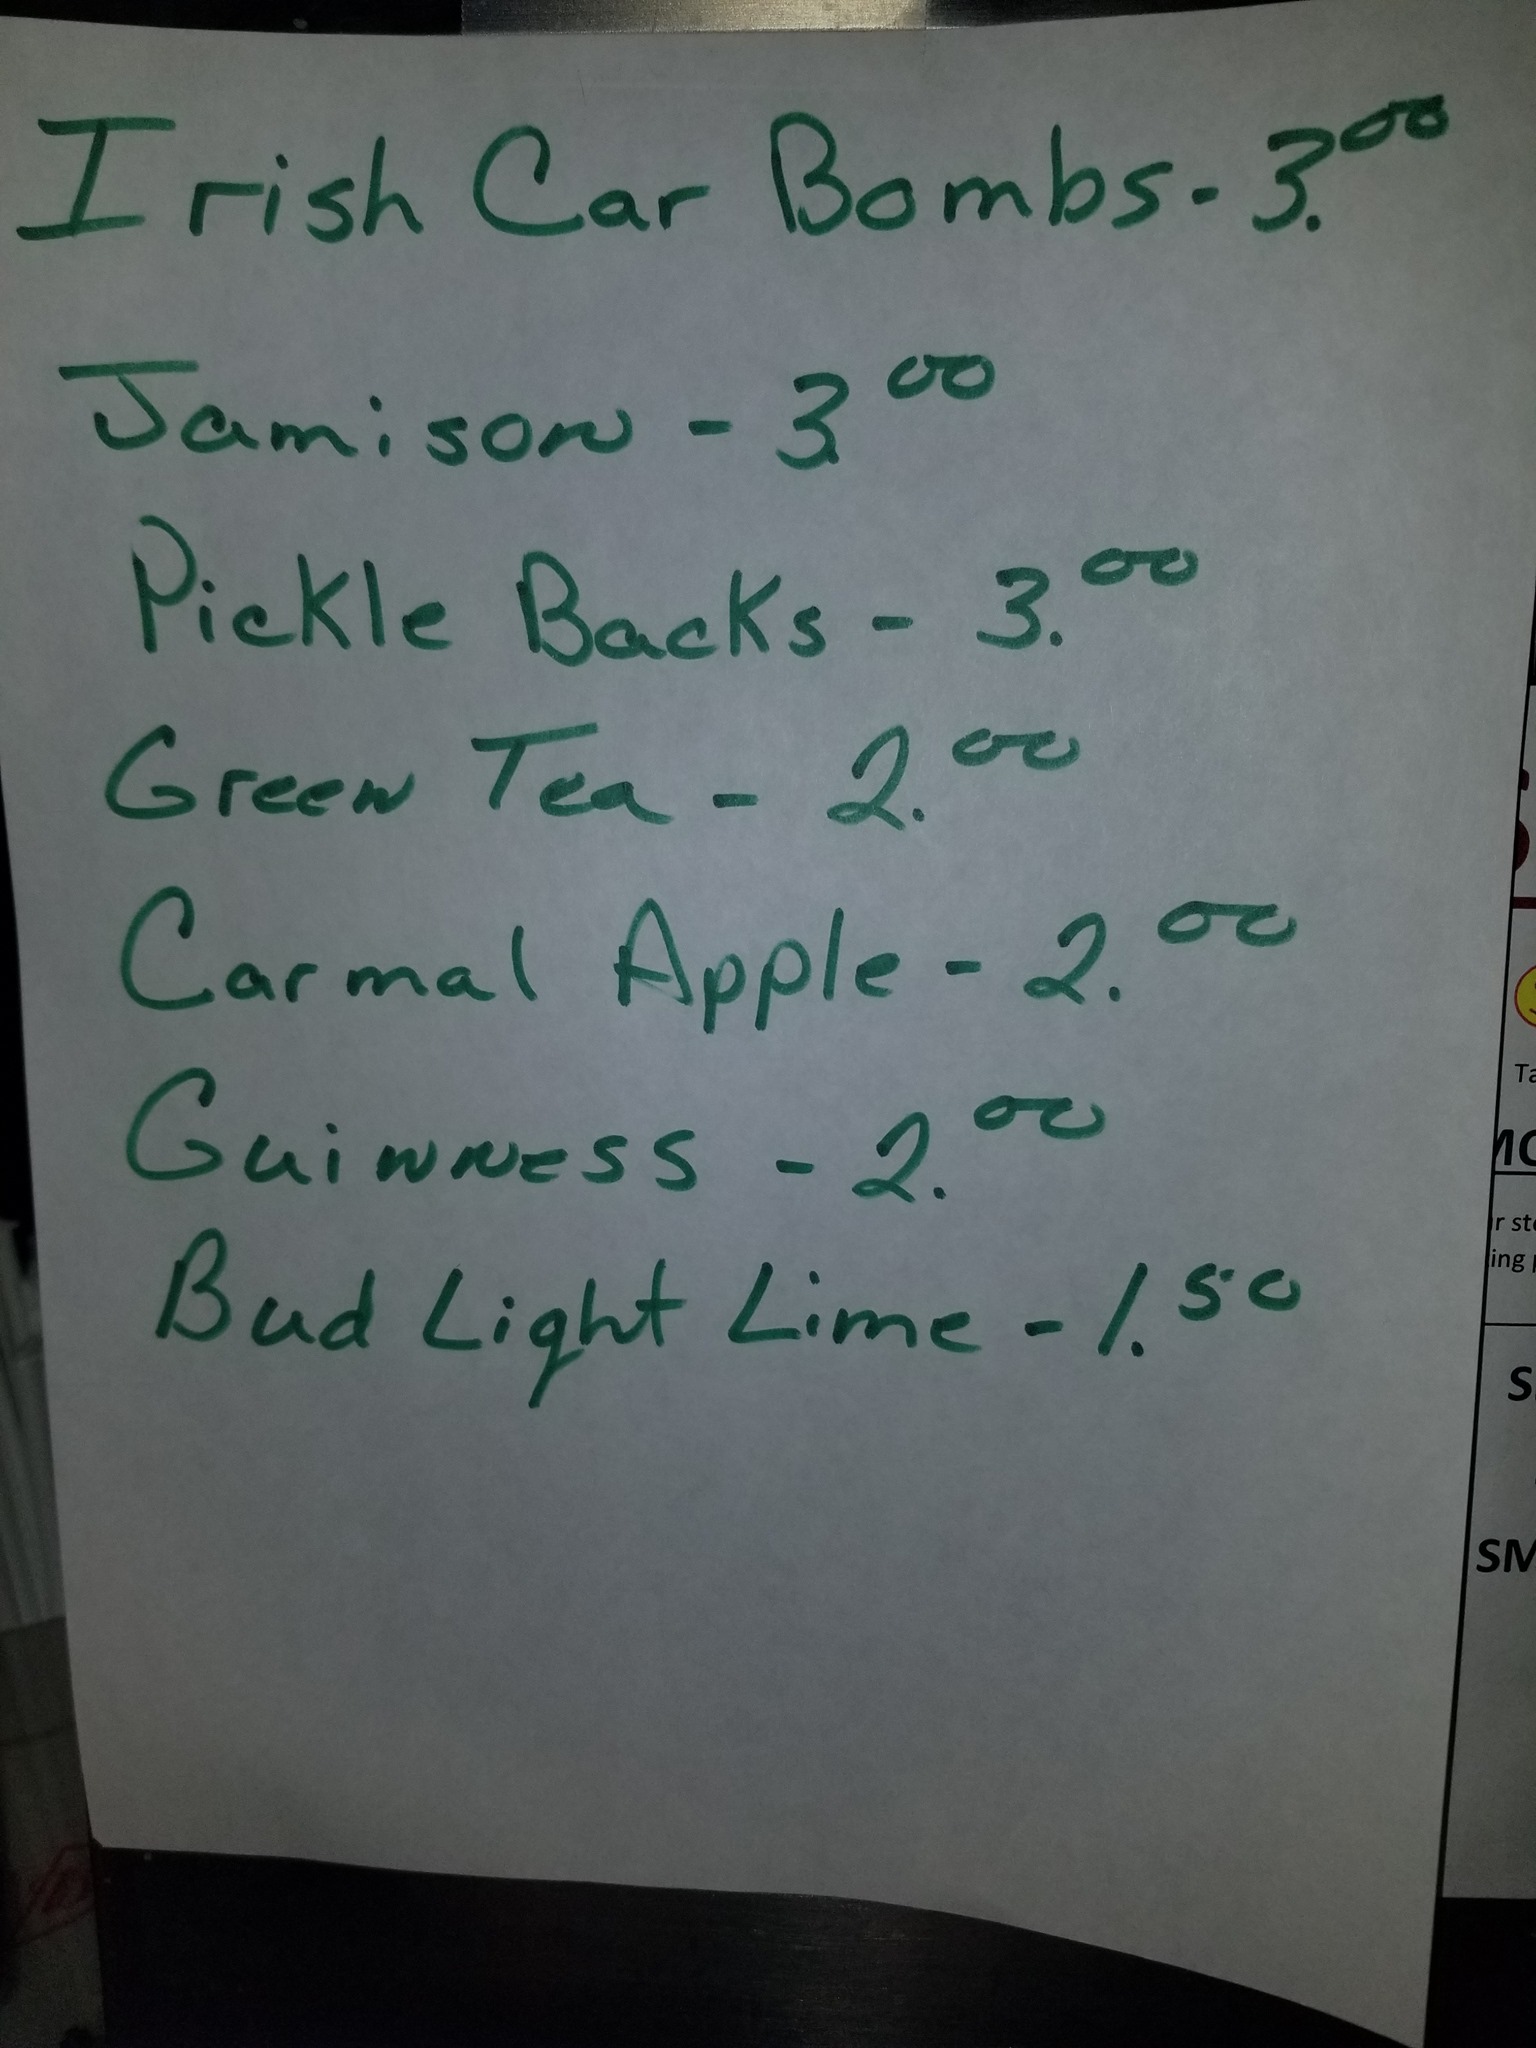 Irish Car Bombs - 3.00
Jamison - 3.00
Pickle Backs - 3.00
Green Tea - 2.00
Carmal Apple - 2.00
Guinness - 2.00
Bud Light Lime - 1.50
Ta
r st
ing
S
SM